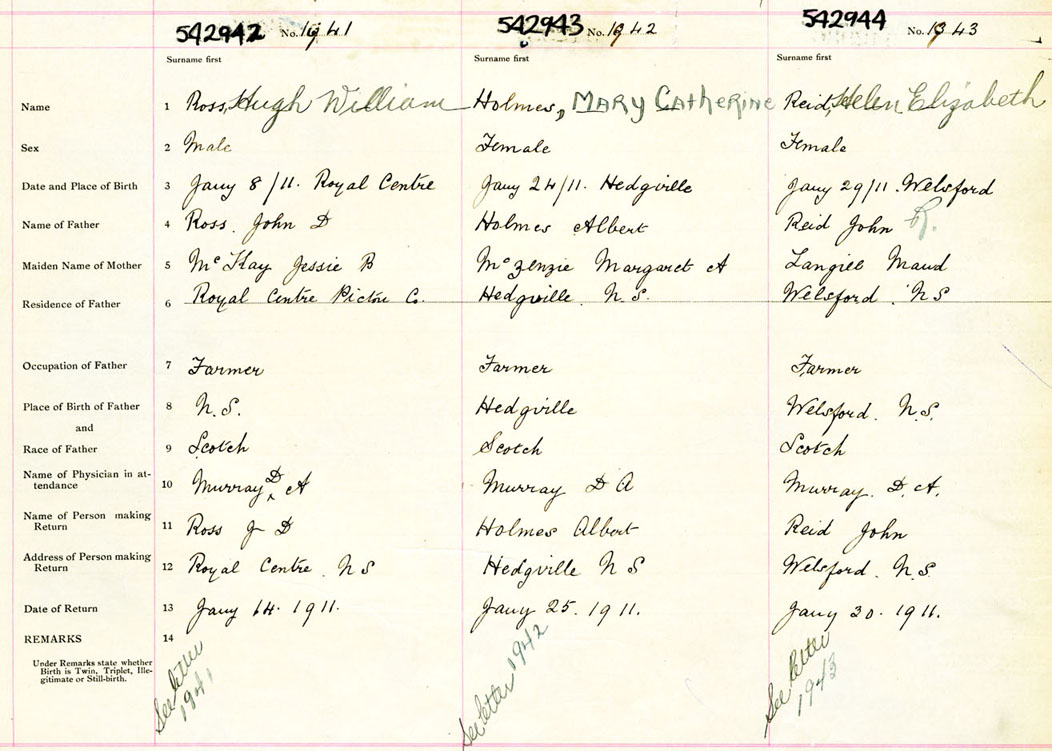 542942 No. 1941 542943 No. 1942 542944 No. 1943
Surname first Surname first Surname first
Name 1 Ross, Hugh William Holmes, Mary Catherine Reid, Helen Elizabeth
Sex 2 Male Female Female
Date and Place of Birth 3 Jany 8/11. Royal Centre Jany 24/11. Hedgville Jany 29/11. Welsford
Name of Father 4 Ross. John D Holmes Albert Reid John R.
Maiden Name of Mother 5 McKay Jessie B McZenzie Margaret A Langill Maud
Residence of Father 6 Royal Centre Pictou Co. Hedgville. N.S. Welsford. N S
Occupation of Father 7 Farmer Farmer Farmer
Place of Birth of Father 8 N.S. Hedgville Welsford. N.S.
and
Race of Father 9 Scotch Scotch Scotch
Name of Physician in at-
tendance 10 Murray D A Murray D A Murray. D. A.
Name of Person making
Return 11 Ross J D Holmes Albert Reid John
Address of Person making
Return 12 Royal Centre. N S Hedgville N S Welsford. N.S.
Date of Return 13 Jany 14. 1911. Jany 25. 1911. Jany 30. 1911.
REMARKS 14
Under Remarks state whether
Birth is Twin, Triplet, Ille-
gitimate or Still-birth.
See letter
1941
See letter 1942
See letter
1943